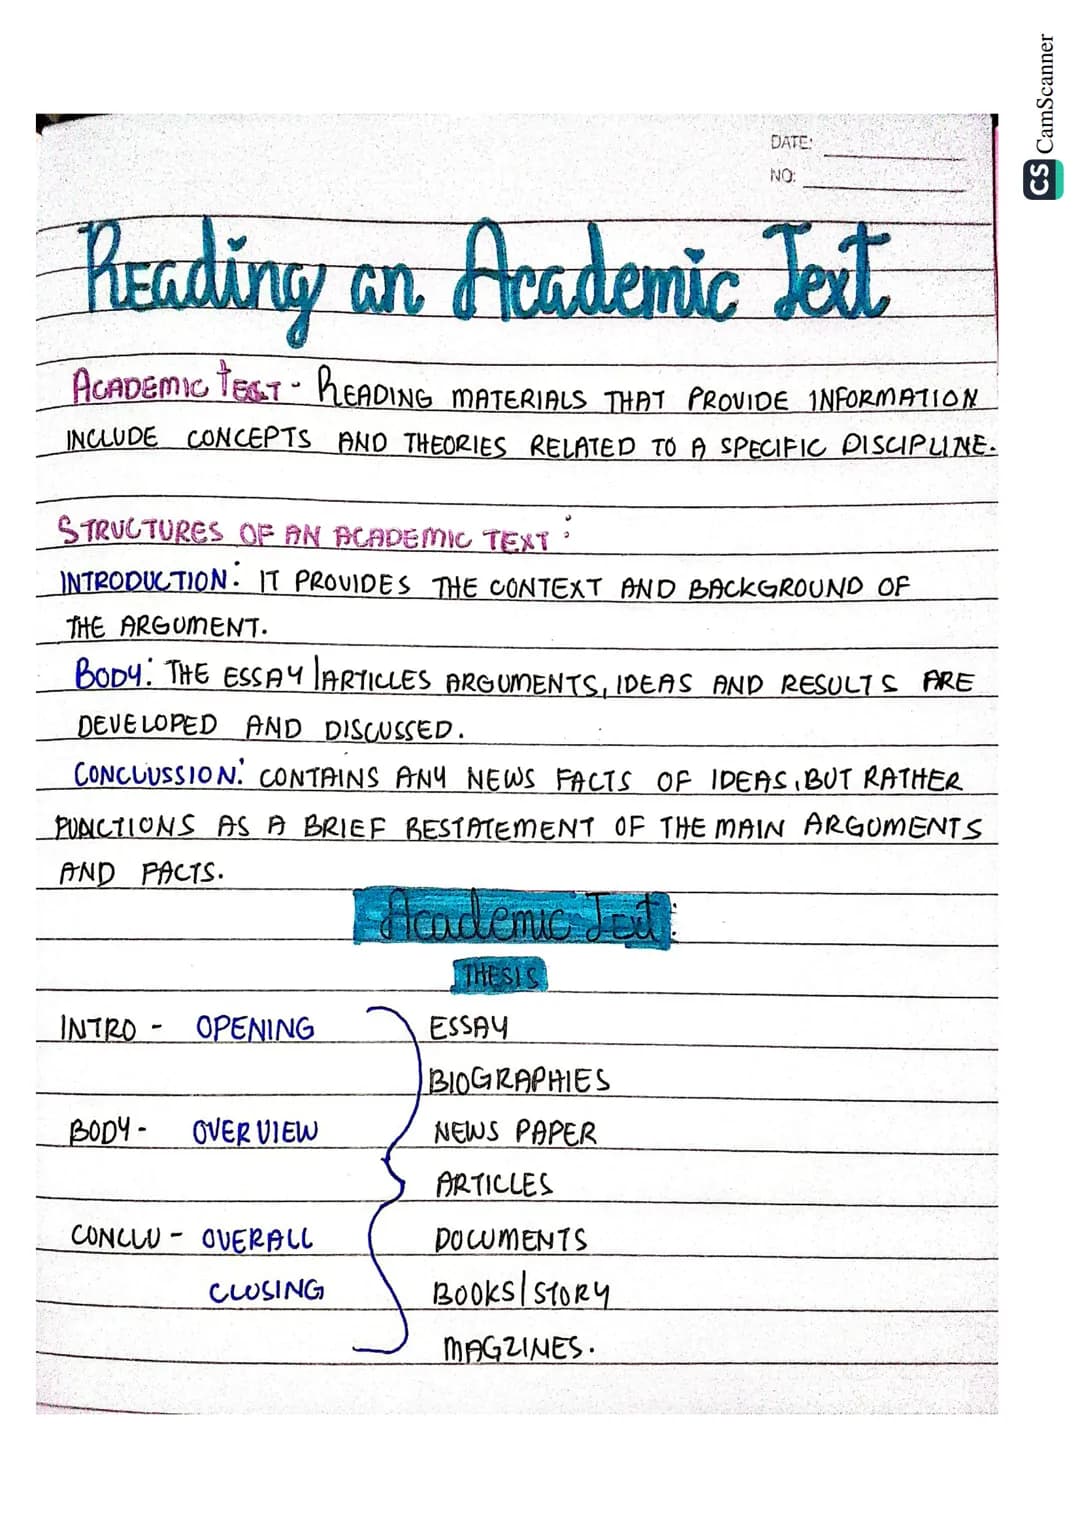 CS CamScanner
DATE:
NO:
Reading an Academic Text
ACADEMIC TEXT - READING MATERIALS THAT PROVIDE INFORMATION
INCLUDE CONCEPTS AND THEORIES RELATED TO A SPECIFIC DISCIPLINE.
STRUCTURES OF AN ACADEMIC TEXT:
INTRODUCTION: IT PROVIDES THE CONTEXT AND BACKGROUND OF
THE ARGUMENT.
BODY: THE ESSAY/ARTICLES ARGUMENTS, IDEAS AND RESULTS ARE
DEVELOPED AND DISCUSSED.
CONCLUSSION: CONTAINS ANY NEWS FACTS OF IDEAS, BUT RATHER
FUNCTIONS AS A BRIEF RESTATEMENT OF THE MAIN ARGUMENTS
AND FACTS.
Academic Text:
THESIS
INTRO - OPENING ESSAY
BIOGRAPHIES
BODY - OVERVIEW NEWS PAPER
ARTICLES
CONCLU - OVERALL DOCUMENTS
CLOSING BOOKS/STORY
MAGZINES.